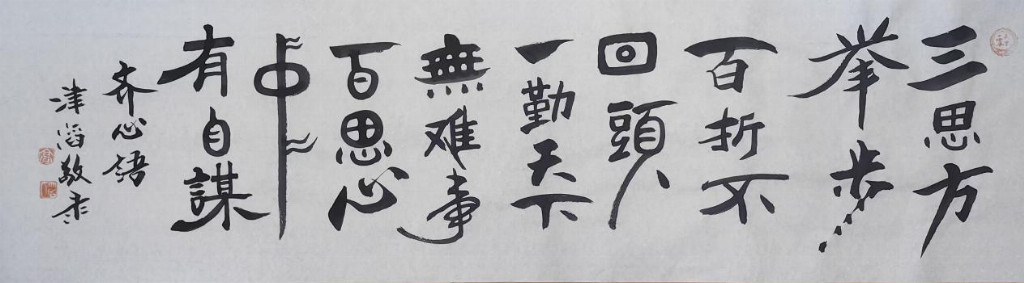 三思方
举步
百折不
回頭
一勤天下
無难事
百思心
中
有自謀
齐心語
津滔敬录